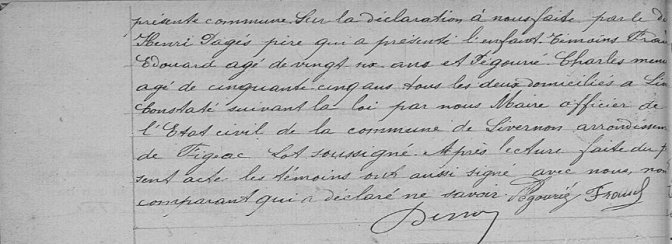 présente commune. Sur la déclaration à nous faite par le d
Henri Pagès père qui a présenté l'enfant. Témoins Frau
Edouard agé de vingt six ans et Pégourié Charles menu
agé de cinquante cinq ans tous les deux domiciliés a Liv
Constaté suivant la loi par nous Maire officier de
l'Etat civil de la commune de Livernon arrondissem
de Figeac Lot soussigné. Après lecture faite du p
sent acte les témoins ont aussi signé avec nous, non
comparant qui a déclaré ne savoir. Pégourié